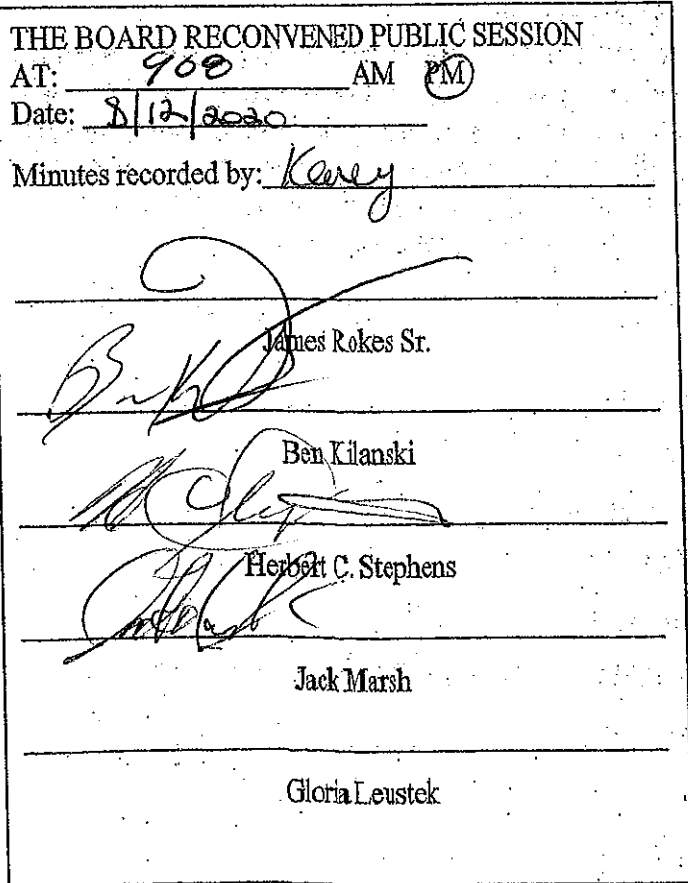 THE BOARD RECONVENED PUBLIC SESSION
AT: 908 AM PM
Date: 8/12/2020
Minutes recorded by:
James Rokes Sr.
Ben Kilanski
Herbert C. Stephens
Jack Marsh
Gloria Leustek